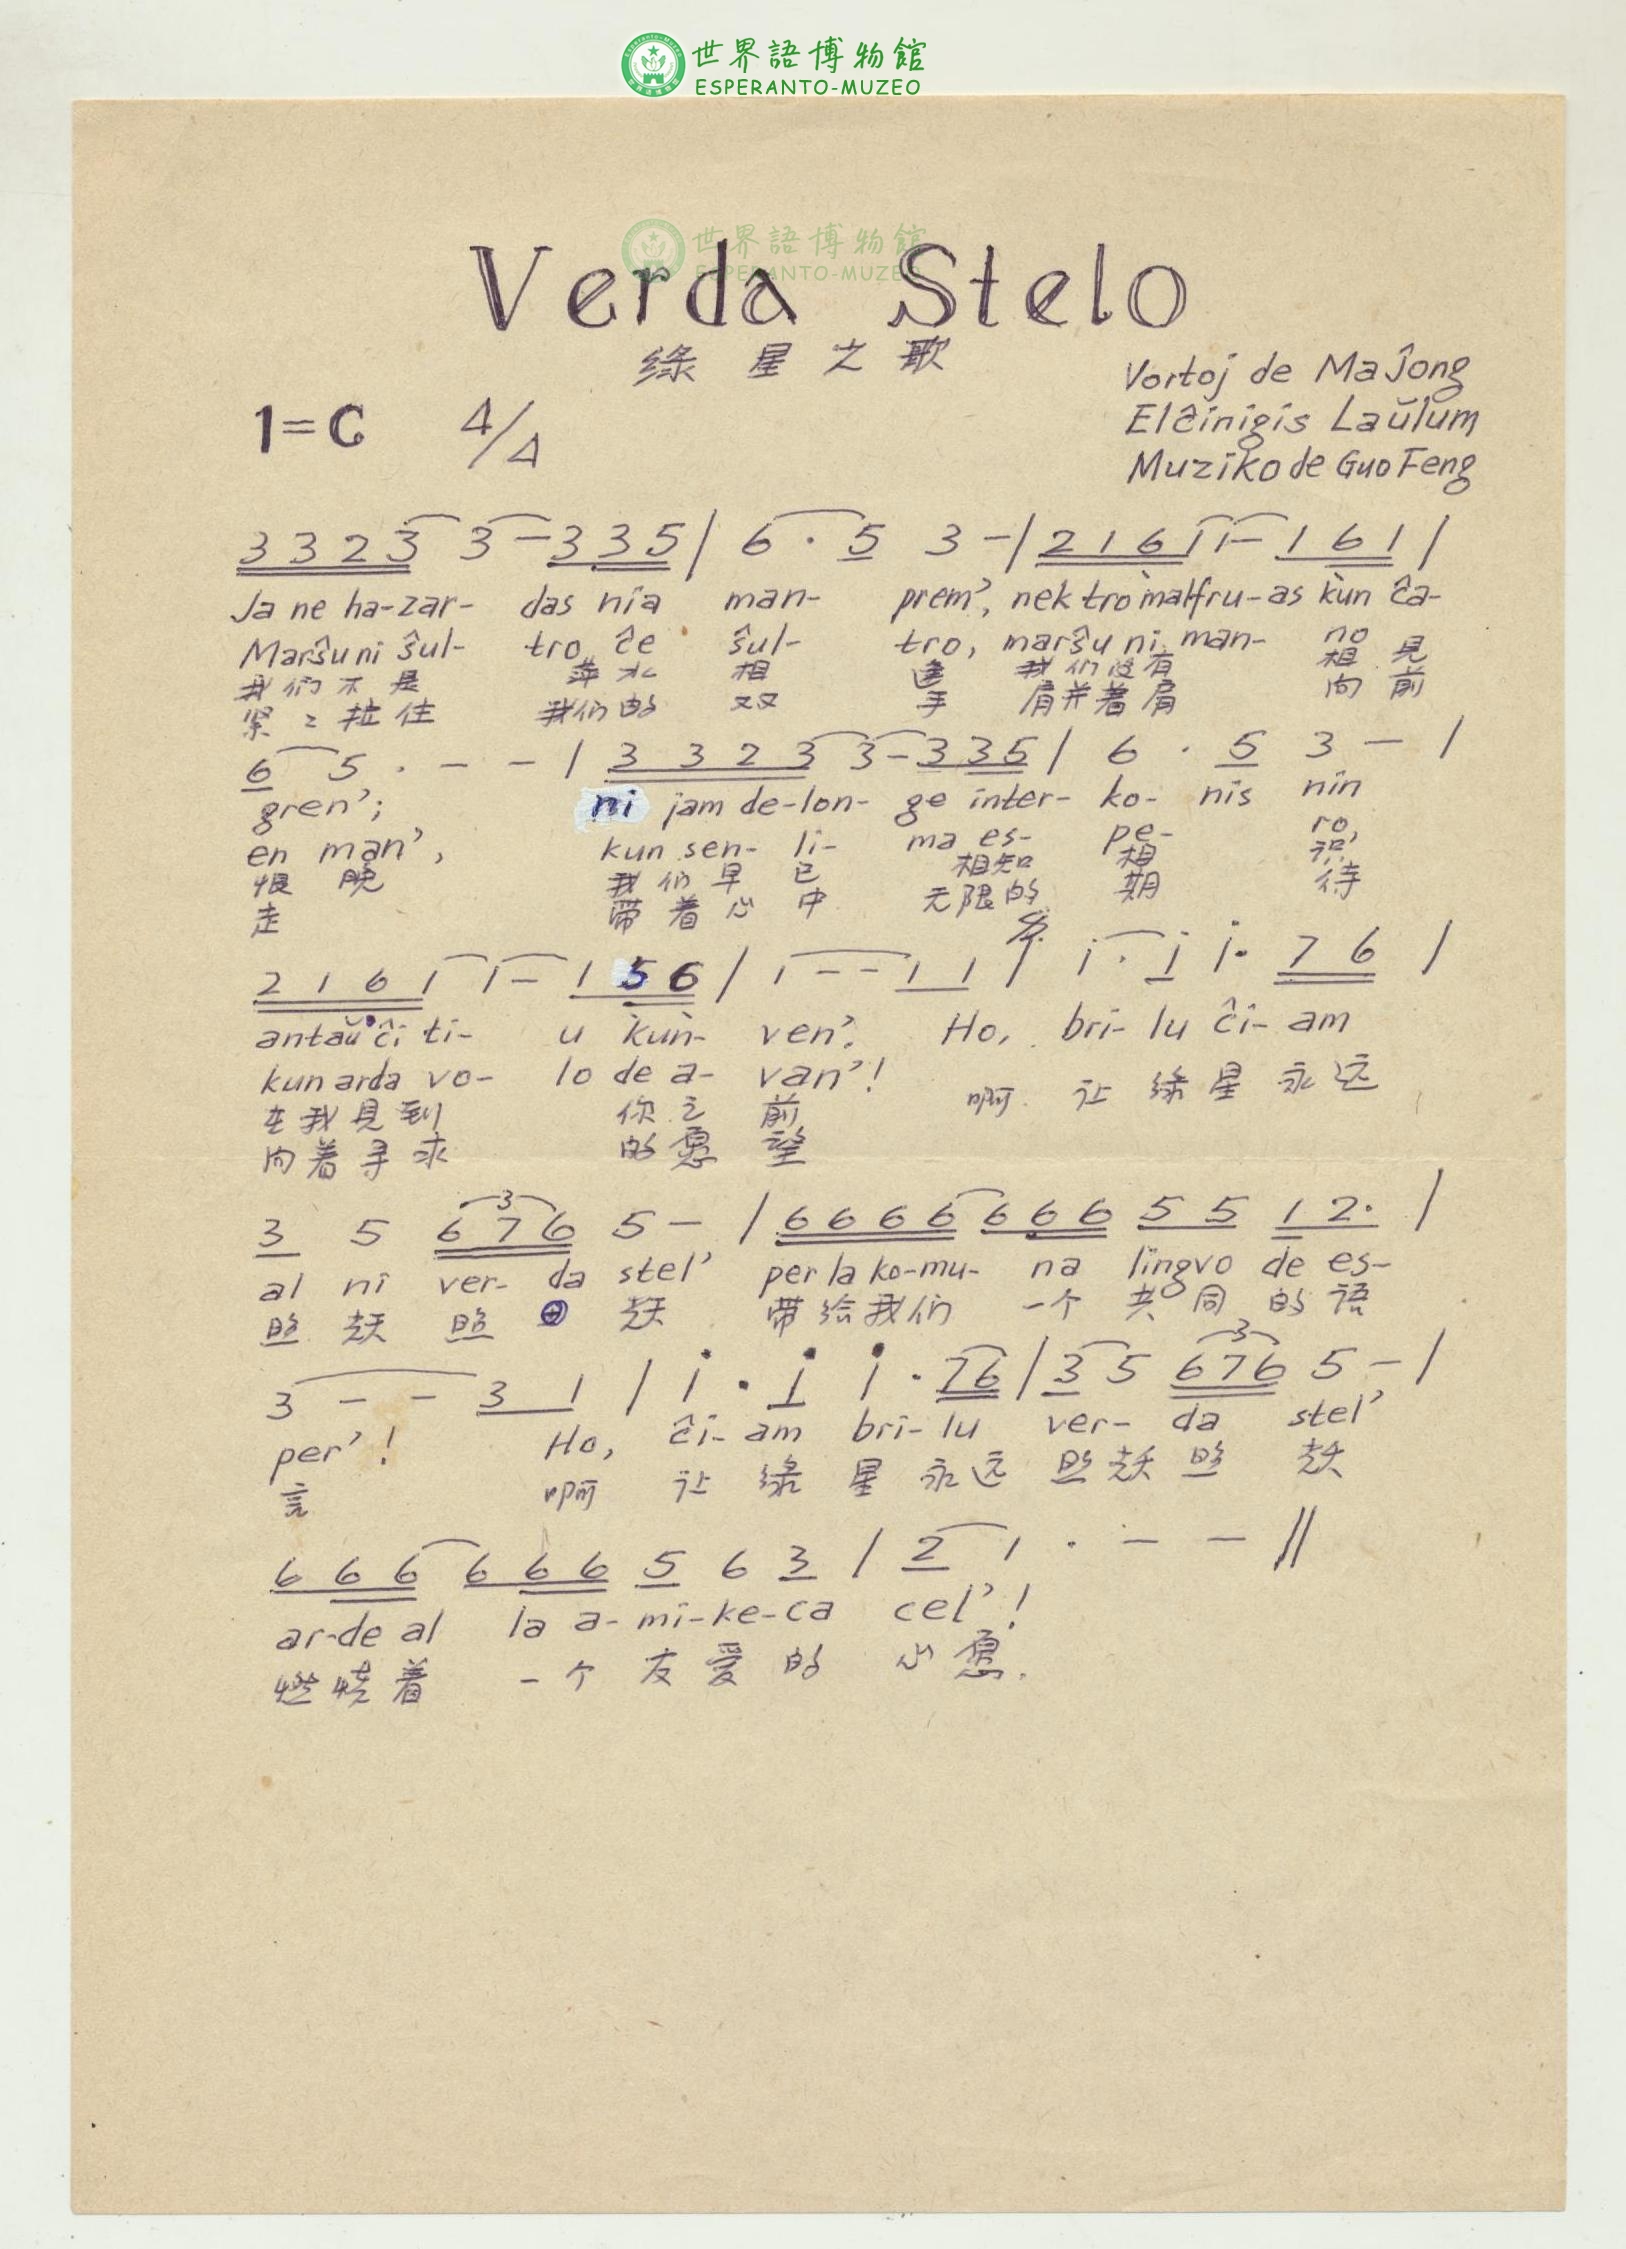 世界語博物館
ESPERANTO-MUZEO
世界語博物館
ESPERANTO-MUZEO
Verda Stelo
綠星之歌
Vortoj de MaĴong
1=C 4/4
Elĉinigis Laŭlum
Muziko de Guo Feng
3 3 2 3 3 – 3 3 5 | 6 · 5 3 – | 2 1 6 1 1 – 1 6 1 |
Ja ne ha-zar- das nia man- prem', nek tro malfru-as kun ĉa-
Marŝu ni ŝul- tro ĉe ŝul- tro, marŝu ni man- no
我们不是 萍水 相 逢 我们没有 相見
紧々拉住 我们的 双 手 肩并着肩 向前
6 5 · – – | 3 3 2 3 3 – 3 3 5 | 6 · 5 3 – |
gren'; ni jam de-lon- ge inter- ko- nis nin
en man', kun sen- li- ma es- pe- ro,
恨晚 我们早已 相知 相 识
走 带着心中 无限的 期 待
2 1 6 1 1 – 1 5 6 | 1 – – 1 1 | i · i i · 7 6 |
antaŭ ĉi ti- u kun- ven'. Ho, bri- lu ĉi- am
kun arda vo- lo de a- van'!
啊 让綠星永远
在我見到 你之 前
向着寻求 的愿 望
3 5 6 7 6 5 – | 6 6 6 6 6 6 6 5 5 1 2 · |
al ni ver- da stel' per la ko-mu- na lingvo de es-
照 耀 照 耀 带给我们 一个 共同 的语
3 – – 3 1 | i · i i · 7 6 | 3 5 6 7 6 5 – |
per'! Ho, ĉi- am bri- lu ver- da stel'
言 啊 让綠星永远 照耀照 耀
6 6 6 6 6 6 5 6 3 | 2 1 · – – ||
ar-de al la a-mi-ke-ca cel'!
燃烧着 一个友爱的 心愿.